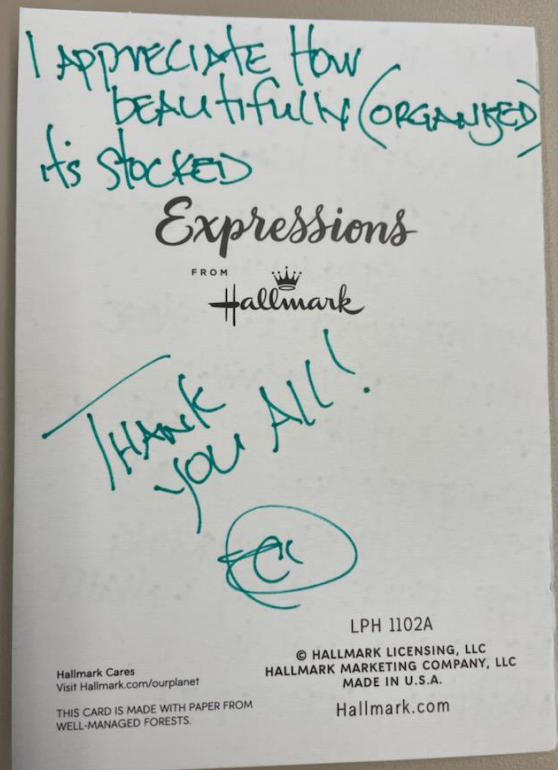 I APPRECIATE HOW
BEAUTIFULLY (ORGANIZED)
it's STOCKED
Expressions
FROM
Hallmark
THANK
YOU ALL!
LPH 1102A
© HALLMARK LICENSING, LLC
HALLMARK MARKETING COMPANY, LLC
MADE IN U.S.A.
Hallmark.com
Hallmark Cares
Visit Hallmark.com/ourplanet
THIS CARD IS MADE WITH PAPER FROM
WELL-MANAGED FORESTS.